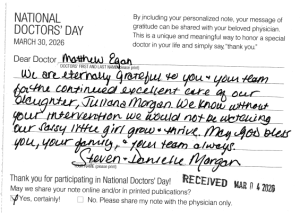 NATIONAL
DOCTORS' DAY
MARCH 30, 2026
By including your personalized note, your message of
gratitude can be shared with your beloved physician.
This is a unique and meaningful way to honor a special
doctor in your life and simply say, "thank you"
Dear Doctor Matthew Egan
DOCTORS' FIRST AND LAST NAME (please print)
We are eternally grateful to you + your team
for the continued excellent care of our
daughter, Juliana Morgan. We know without
your intervention we would not be watching
our sassy little girl grow + thrive. May God bless
you, your family, + your team always.
Steven + Danielle Morgan
(please print)
Thank you for participating in National Doctors' Day!
RECEIVED MAR 04 2026
May we share your note online and/or in printed publications?
Yes, certainly!
No. Please share my note with the physician only.